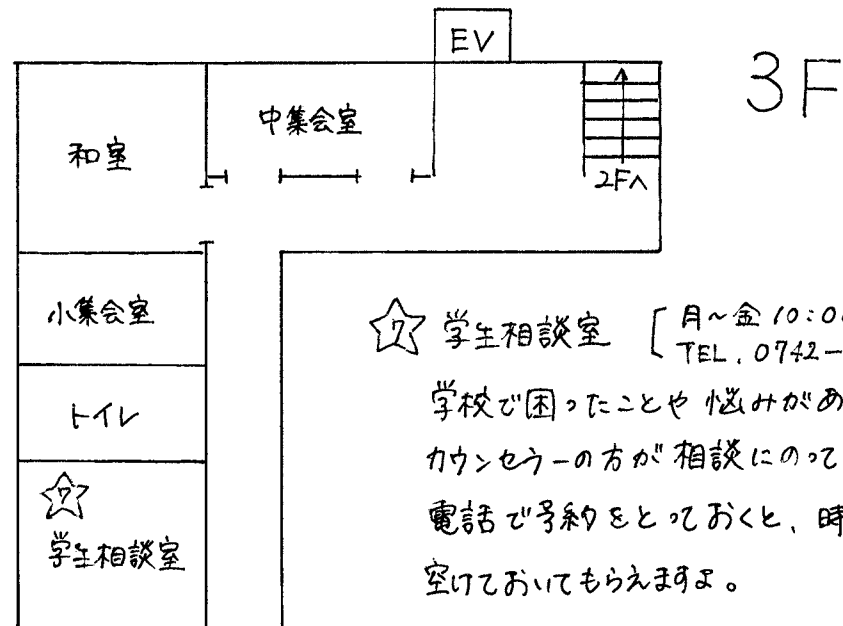 EV
3F
中集会室
和室
2Fへ
小集会室
トイレ
7
学生相談室
7 学生相談室
月～金 10:0
TEL. 0742-
学校で困ったことや悩みがあ
カウンセラーの方が相談にのって
電話で予約をとっておくと、時
空けておいてもらえますよ。